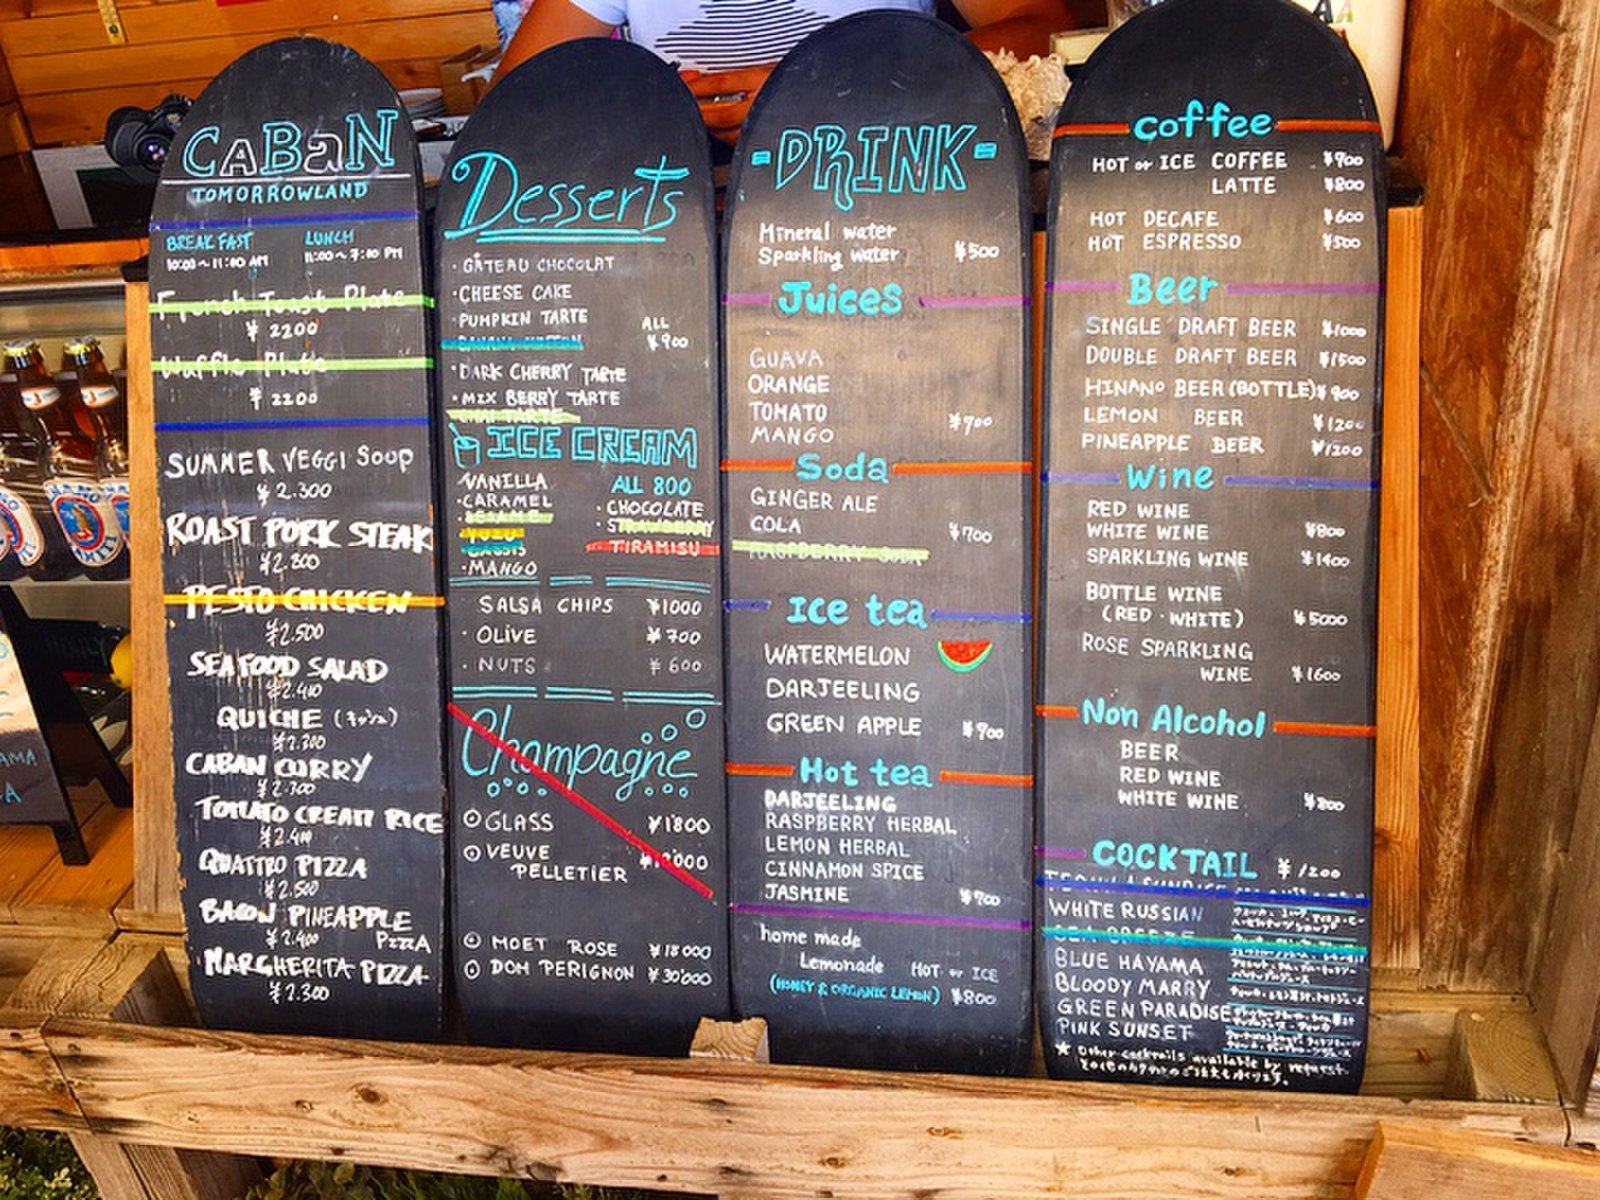 CABaN
TOMORROWLAND
BREAK FAST
10:00~11:00 AM
LUNCH
11:00~7:00 PM
French Toast Plate
¥ 2200
Waffle Plate
¥ 2200
SUMMER VEGGI Soup
¥ 2.300
ROAST PORK STEAK
¥2.800
PESTO CHICKEN
¥2.500
SEAFOOD SALAD
¥2.400
QUICHE (キッシュ)
¥2.300
CABAN CURRY
¥2.300
TOMATO CREAM RICE
¥2.400
QUATTRO PIZZA
¥2.500
BACON PINEAPPLE
¥2.400 PIZZA
MARGHERITA PIZZA
¥2.300
Desserts
· GÂTEAU CHOCOLAT
· CHEESE CAKE
· PUMPKIN TARTE
ALL
¥900
· DARK CHERRY TARTE
· MIX BERRY TARTE
CHAI TARTE
ICE CREAM
VANILLA
ALL 800
· CARAMEL
· CHOCOLATE
· SESAME
· STRAWBERRY
YUZU
· CASSIS
TIRAMISU
· MANGO
SALSA CHIPS ¥1000
· OLIVE ¥ 700
· NUTS ¥ 600
Champagne
GLASS ¥1'800
VEUVE
PELLETIER
MOET ROSE ¥18000
DOM PERIGNON ¥30'000
-DRINK-
Mineral water
Sparkling water ¥500
Juices
GUAVA
ORANGE
TOMATO
MANGO ¥700
Soda
GINGER ALE
COLA ¥700
RASPBERRY SODA
Ice tea
WATERMELON
DARJEELING
GREEN APPLE ¥700
Hot tea
DARJEELING
RASPBERRY HERBAL
LEMON HERBAL
CINNAMON SPICE
JASMINE ¥700
home made
Lemonade HOT or ICE
(HONEY & ORGANIC LEMON) ¥800
coffee
HOT or ICE COFFEE ¥700
LATTE ¥800
HOT DECAFE ¥600
HOT ESPRESSO ¥500
Beer
SINGLE DRAFT BEER ¥1000
DOUBLE DRAFT BEER ¥1500
HINANO BEER (BOTTLE) ¥900
LEMON BEER ¥1200
PINEAPPLE BEER ¥1200
Wine
RED WINE
WHITE WINE ¥800
SPARKLING WINE ¥1400
BOTTLE WINE
(RED · WHITE) ¥5000
ROSE SPARKLING
WINE ¥1600
Non Alcohol
BEER
RED WINE
WHITE WINE ¥800
COCKTAIL ¥1200
TEQUILA SUNRISE
WHITE RUSSIAN
SEA BREEZE
BLUE HAYAMA
BLOODY MARRY
GREEN PARADISE
PINK SUNSET
★ Other cocktails available by request.